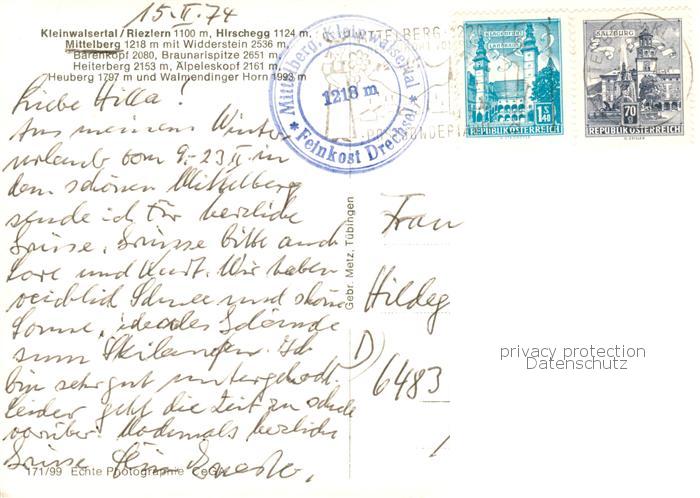 15.II.74
Kleinwalsertal / Riezlern 1100 m, Hirschegg 1124 m,
Mittelberg 1218 m mit Widderstein 2536 m.
Bärenkopf 2080, Braunarlspitze 2651 m.
Heiterberg 2153 m, Älpeleskopf 2161 m,
Heuberg 1797 m und Walmendinger Horn 1993 m
Mittelberg, Kleinwalsertal
1218 m
* Feinkost Drechsel *
KLAGENFURT
LANDHAUS
1.S 40
REPUBLIK ÖSTERREICH
SALZBURG
70
REPUBLIK ÖSTERREICH
Liebe Hilla!
Aus meinem Winter
urlaub vom 9.-23.II. in
dem schönen Mittelberg
sende ich Dir herzliche
Grüsse. Grüsse bitte auch
Lore und Kurt. Wir haben
reichlich Schnee und schöne
Sonne, ideales Gelände
zum Skilaufen. Ich
bin sehr gut untergebracht.
Leider geht die Zeit zu schnell
vorüber. Nochmals herzliche
Grüsse
Gebr. Metz, Tübingen
Frau
Hildeg
D) 6483
privacy protection
Datenschutz
171/99 Echte Photographie CeGA